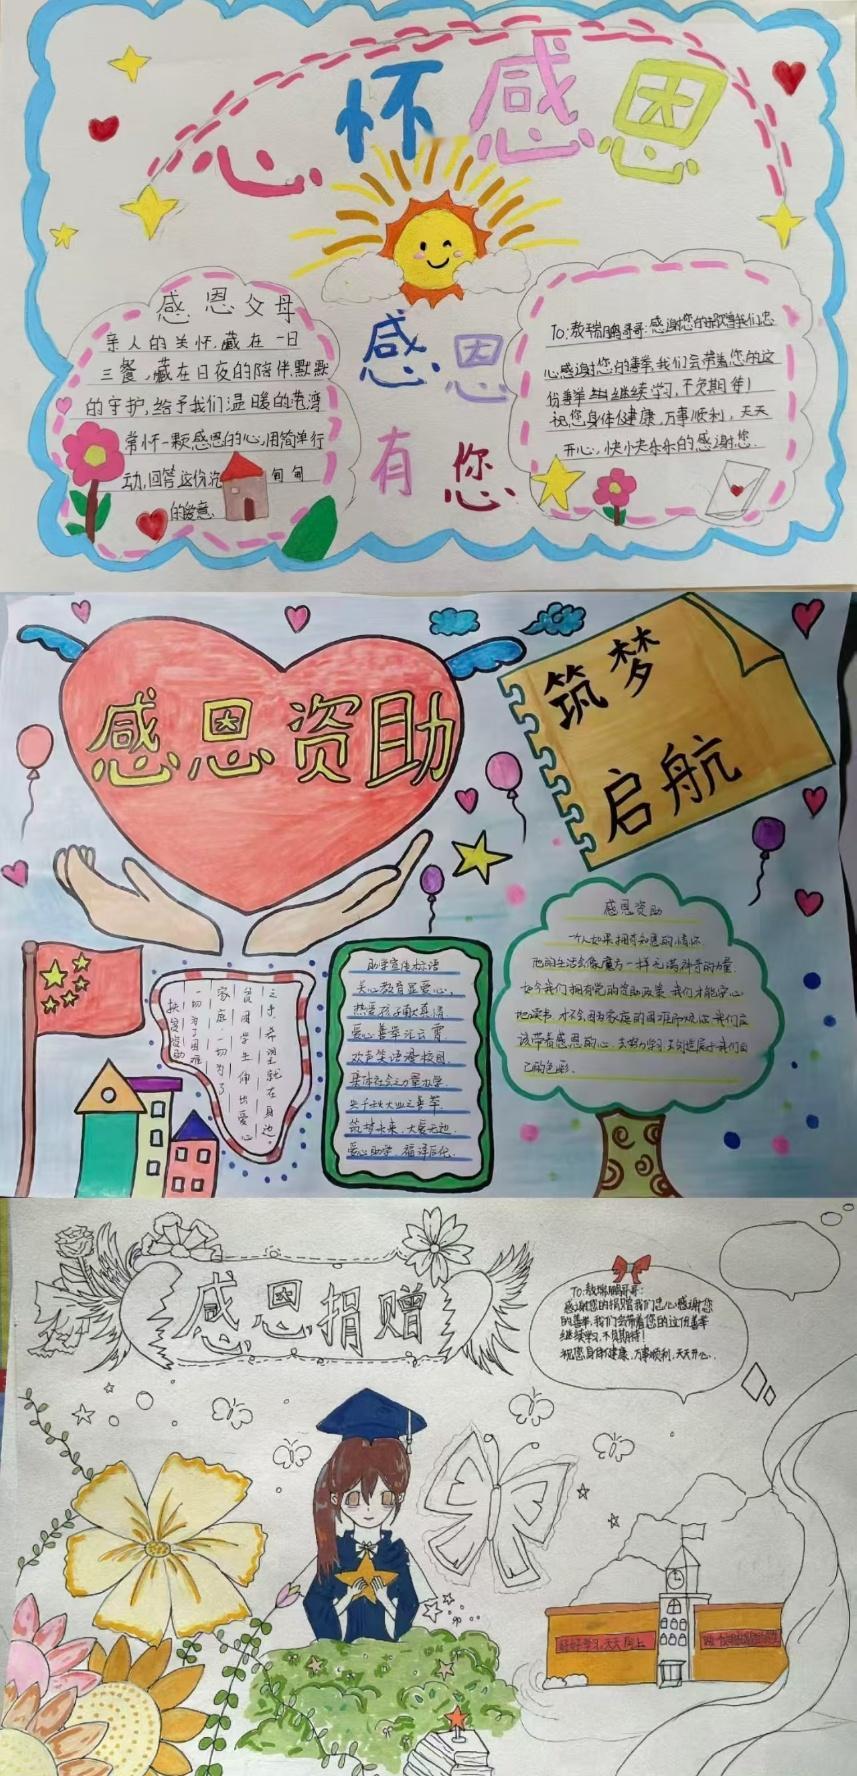 心怀感恩
感恩父母
亲人的关怀,藏在一日
三餐,藏在日夜的陪伴.默默
的守护,给予我们温暖的港湾
常怀一颗感恩的心,用简单行
动,回答这份沉甸甸
的爱意.
感恩
有您
To:敖瑞鹏哥哥:感谢您的捐赠我们忠
心感谢您的善举,我们会带着您的这
份善举继续学习,不负期待!
祝您身体健康,万事顺利,天天
开心,快小夬乐乐的感谢您.
感恩资助
筑梦
启航
之手希望就在身边.
贫困学生伸出爱心
家庭一切为了
一切为了困难
扶贫资助
助学宣传标语
关心教育显爱心,
热爱孩子献真情
爱心善举泣云霄
欢声笑语漫校园.
集体社会之力量办学.
筑梦未来,大爱无边.
爱心助学,福泽后代.
感恩资助
一个人如果拥有知恩的情怀
他的生活会像魔方一样充满神奇的力量.
如今我们拥有党的资助政策,我们才能安心
地读书,才不会因为家庭的困难而
该带着感恩的心,去努力学习去创造属于我们自
己的色彩.
感恩捐赠
To:敖瑞鹏哥哥:
感谢您的捐赠我们忠心感谢您
的善举,我们会带着您的这份善举
继续学习,不负期待!
祝您身体健康,万事顺利,天天开心.
好好学习,天天向上